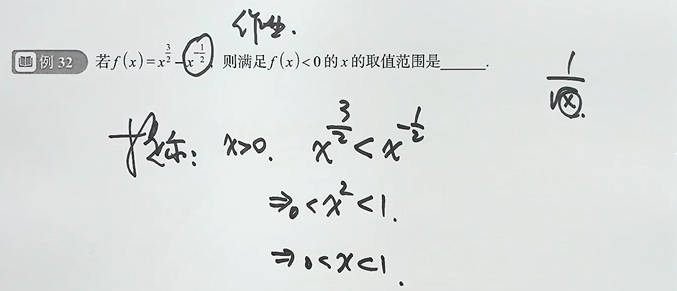 作业.
例 32 若 f(x)=x^{3/2}-x^{-1/2}, 则满足 f(x)<0 的 x 的取值范围是______.
1/√x.
提示: x>0. x^{3/2}<x^{-1/2}
⇒0<x^2<1.
⇒0<x<1.